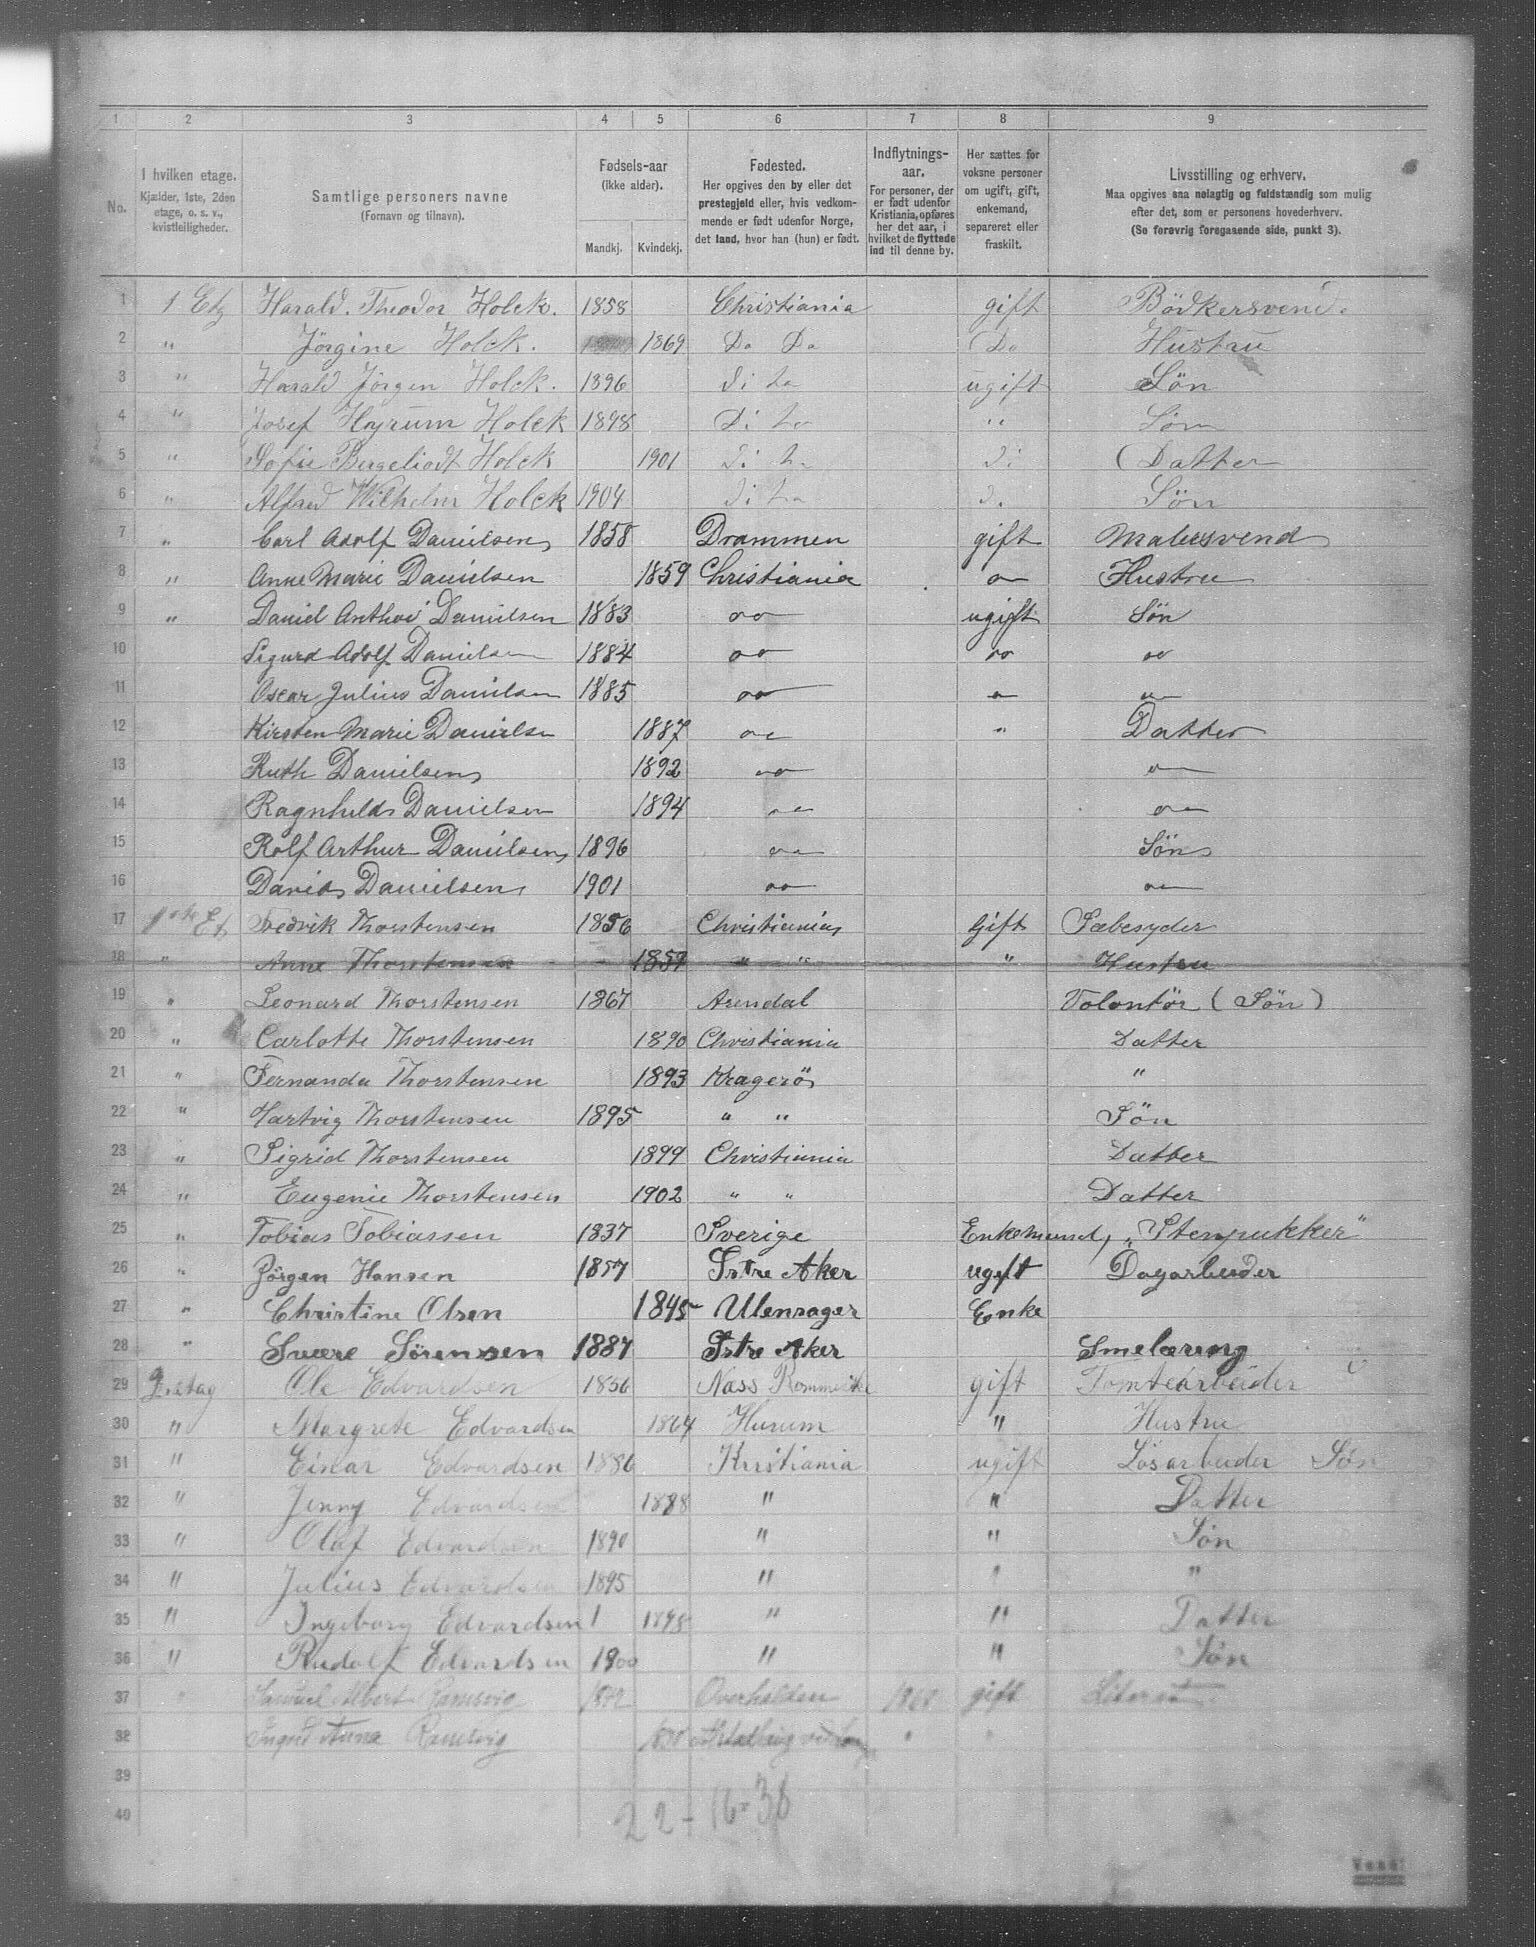 1 2 3 4 5 6 7 8 9
No. I hvilken etage. Kjælder, 1ste, 2den etage, o. s. v., kvistleiligheder. Samtlige personers navne (Fornavn og tilnavn). Fødsels-aar (ikke alder). Mandkj. Kvindekj. Fødested. Her opgives den by eller det prestegjeld eller, hvis vedkommende er født udenfor Norge, det land, hvor han (hun) er født. Indflytnings-aar. For personer, der er født udenfor Kristiania, opføres her det aar, i hvilket de flyttede ind til denne by. Her sættes for voksne personer om ugift, gift, enkemand, separeret eller fraskilt. Livsstilling og erhverv. Maa opgives saa nøiagtig og fuldstændig som mulig efter det, som er personens hovederhverv. (Se forøvrig foregaaende side, punkt 3).
1 1 Etg Harald. Theodor Holck. 1858 Christiania gift Bödkersvend.
2 " Jörgine Holck. 1869 Do Do Do Hustru
3 " Harald Jörgen Holck. 1896 Di to ugift Sön
4 " Josef Hyrum Holck 1898 Di to " Sön
5 " Sofie Holck 1901 Di to Di Datter
6 " Alfred Wilhelm Holck 1904 Di to Di Sön
7 " Carl Adolf Danielsen 1858 Drammen gift Malersvend
8 " Anne Marie Danielsen 1859 Christiania " Hustru
9 " Daniel Danielsen 1883 do ugift Søn
10 Sigurd Adolf Danielsen 1884 do do do
11 Oscar Julius Danielsen 1885 do " "
12 Kirsten Marie Danielsen 1887 do " Datter
13 Ruth Danielsen 1892 do "
14 Ragnhild Danielsen 1894 do do
15 Rolf Arthur Danielsen 1896 do Søn
16 David Danielsen 1901 do do
17 1ste Et Fredrik Thorstensen 1856 Christiania Gift Sæbesyder
18 " Anne Thorstensen 1857 " " " Hustru
19 " Leonard Thorstensen 1867 Arendal Volontör (Sön)
20 " Carlotte Thorstensen 1890 Christiania Datter
21 " Fernanda Thorstensen 1893 Kragerö "
22 " Hartvig Thorstensen 1895 " " Sön
23 " Sigrid Thorstensen 1899 Christiania Datter
24 " Eugenie Thorstensen 1902 " " Datter
25 " Tobias Tobiassen 1837 Sverige Enkemand, „Stenpukker"
26 " Jörgen Hansen 1857 Østre Aker ugift Dagarbeider
27 " Christine Olsen 1845 Ulensager Enke
28 " Sverre Sørensen 1887 Østre Aker Smelæring
29 2 etag Ole Edvardsen 1856 Næss Romerike gift Tomtearbeider
30 " Margrete Edvardsen 1864 Hurum " Hustru
31 " Einar Edvardsen 1886 Kristiania ugift Lösarbeider Søn
32 " Jenny Edvardsen 1888 " " Datter
33 " Olaf Edvardsen 1890 " " Søn
34 " Julius Edvardsen 1895 " " "
35 " Ingeborg Edvardsen 1 1898 " " Datter
36 " Rudolf Edvardsen 1900 " " Søn
37 " Samuel Albert Ramsvig Overhalden gift
38 Ingrid Anna Ramsvig " "
39
40
22-16-38